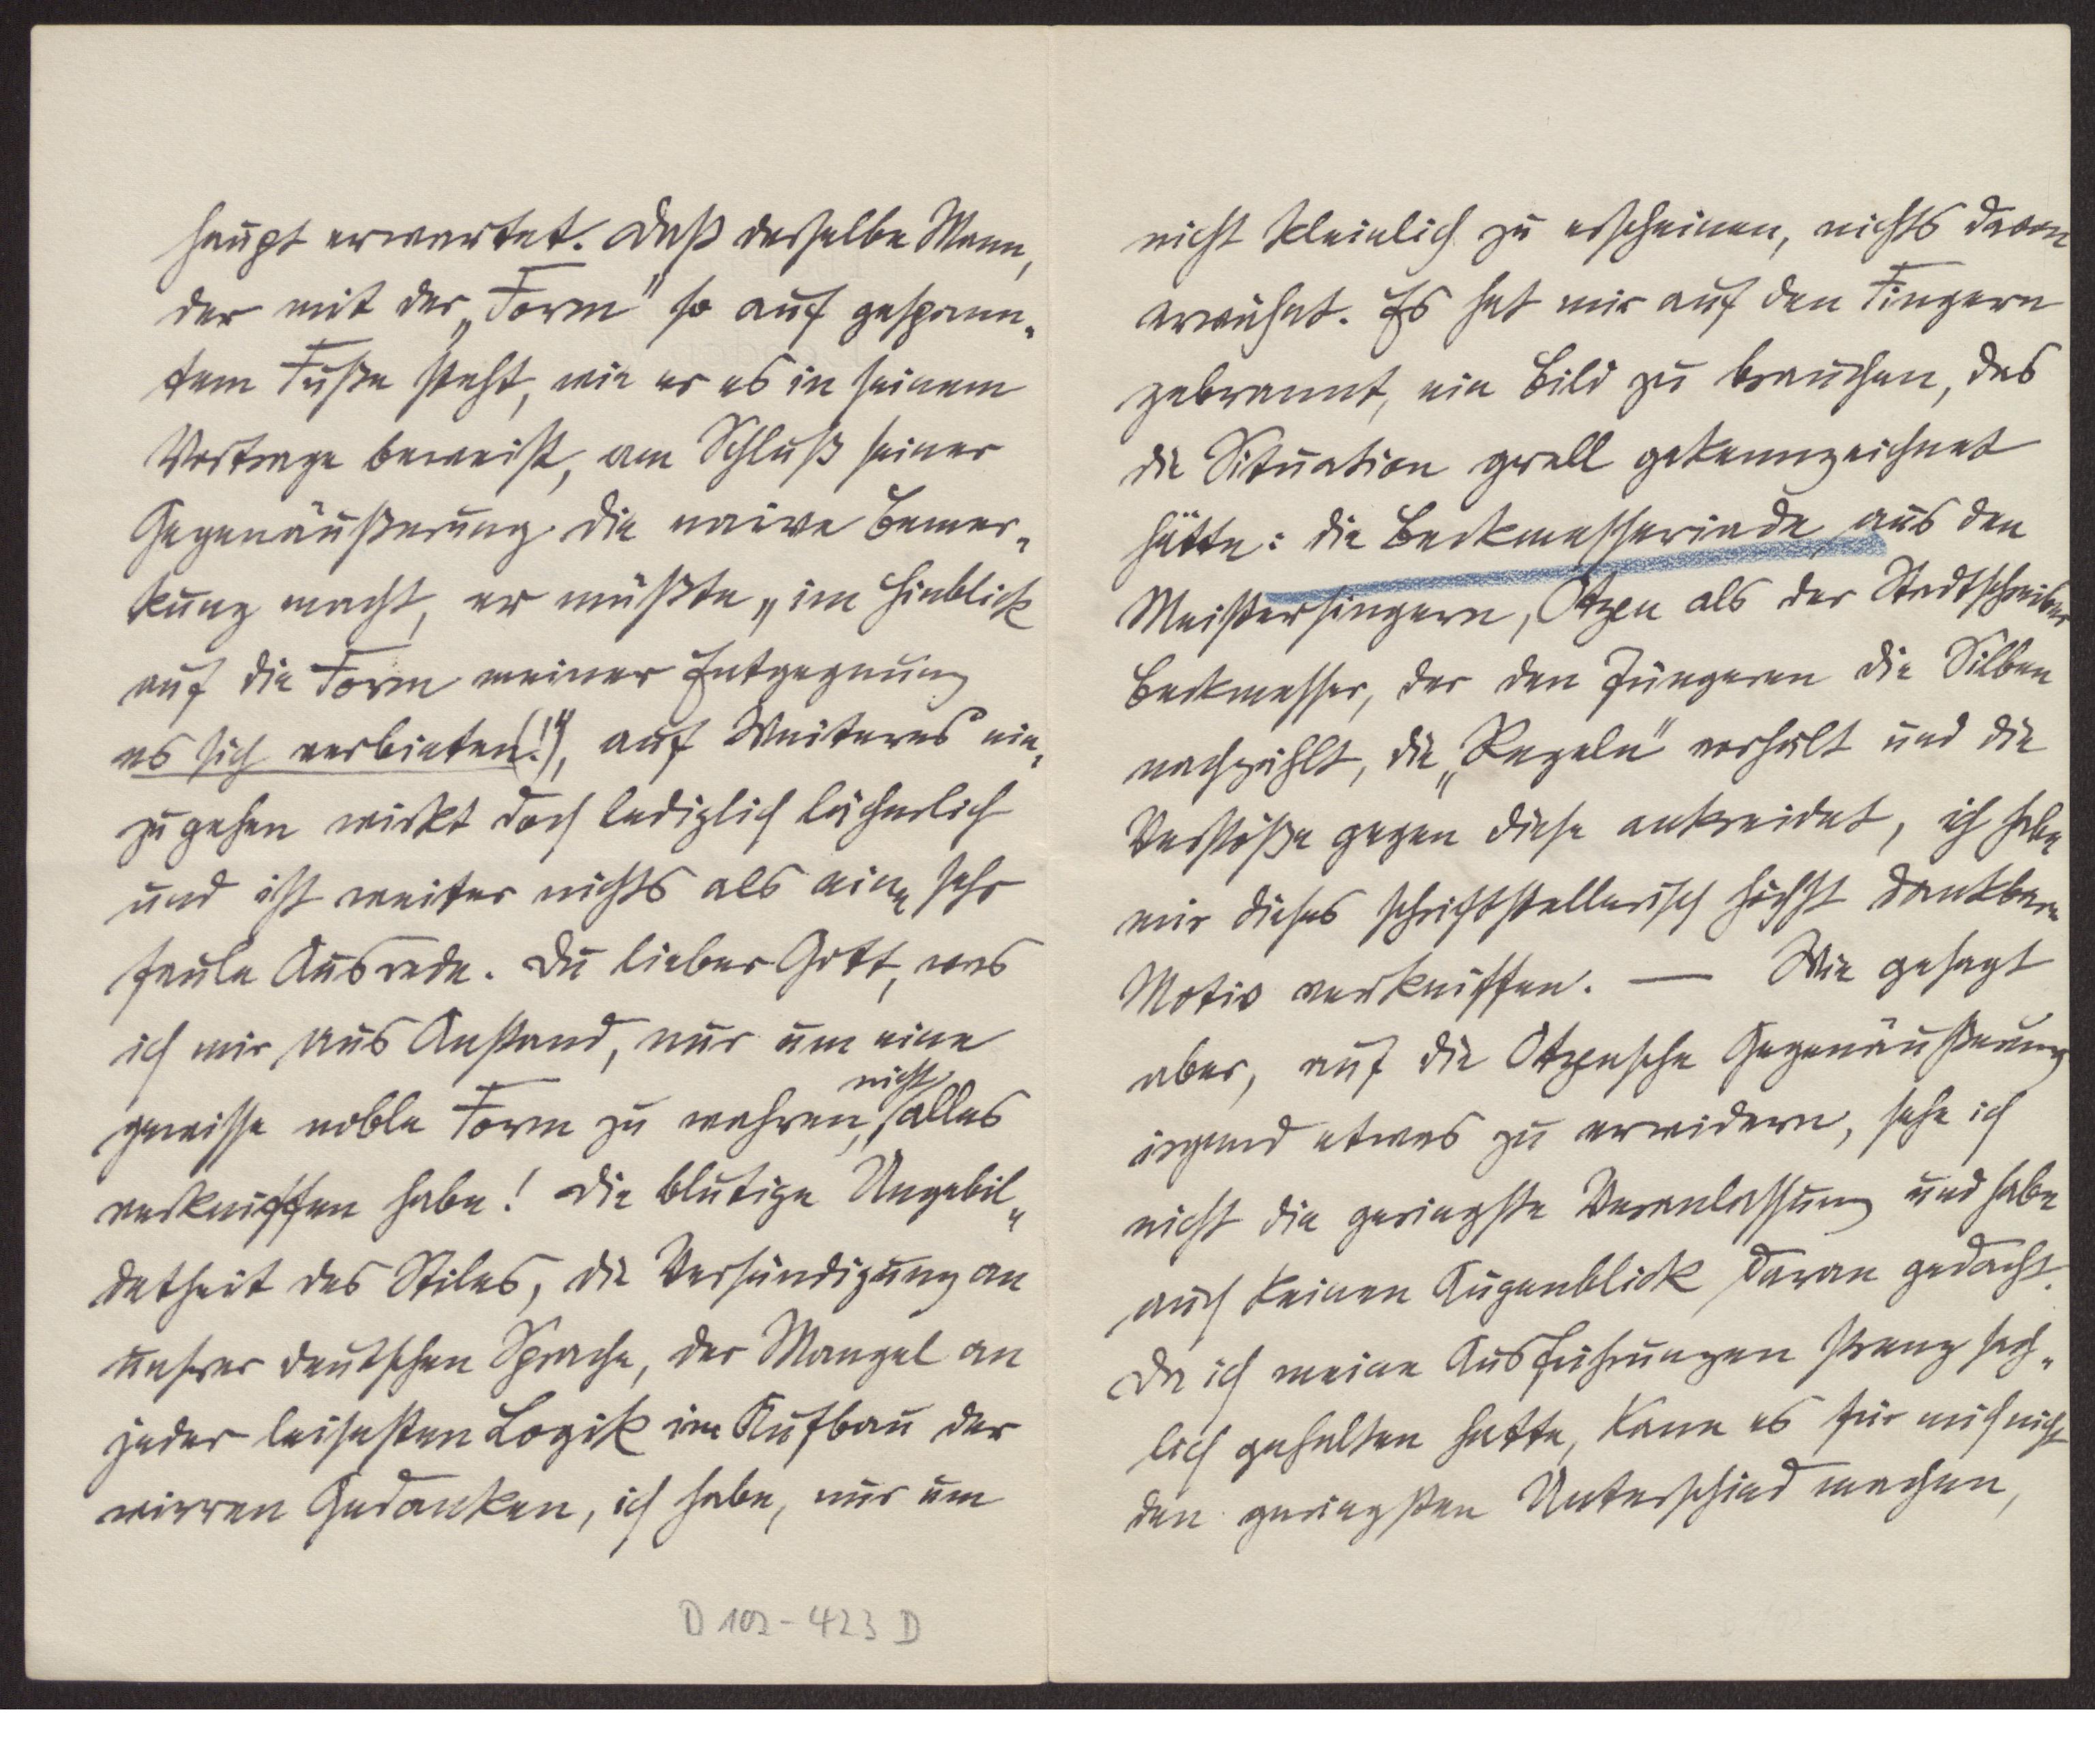 haupt erwartet. Daß derselbe Mann,
der mit der „Form" so auf gespann„
tem Fuße steht, wie er es in seinem
Vortrage beweist, am Schluß seiner
Gegenäußerung die naive Bemer„
kung macht, er müßte „im Hinblick
auf die Form meiner Entgegnung
es sich verbieten(!"), auf Weiteres ein„
zugehen wirkt doch lediglich lächerlich
und ist weiter nichts als eine sehr
faule Ausrede. Du lieber Gott, was
ich mir aus Anstand, nur um eine
gewisse noble Form zu wahren, nicht alles
verkniffen habe! Die blutige Ungebil„
detheit des Stiles, die Versündigung an
unsrer deutschen Sprache, der Mangel an
jeder leisesten Logik im Aufbau der
wirren Gedanken, ich habe, nur um
D 102-423 D
nicht kleinlich zu erscheinen, nichts davon
erwähnt. Es hat mir auf den Fingern
gebrannt, ein Bild zu brauchen, das
die Situation grell gekennzeichnet
hätte: die Beckmesseriade aus den
Meistersingern, Otzen als der Stadtschreiber
Beckmesser, der den Jüngeren die Silben
nachzählt, die „Regeln" vorhält und die
Verstöße gegen diese ankreidet, ich habe
mir dieses schriftstellerisch höchst dankbare
Motiv verkniffen. — Wie gesagt
aber, auf die Otzensche Gegenäußerung
irgend etwas zu erwidern, sehe ich
nicht die geringste Veranlassung und habe
auch keinen Augenblick daran gedacht.
Da ich meine Ausführungen streng sach„
lich gehalten hatte, kann es für mich nicht
den geringsten Unterschied machen,